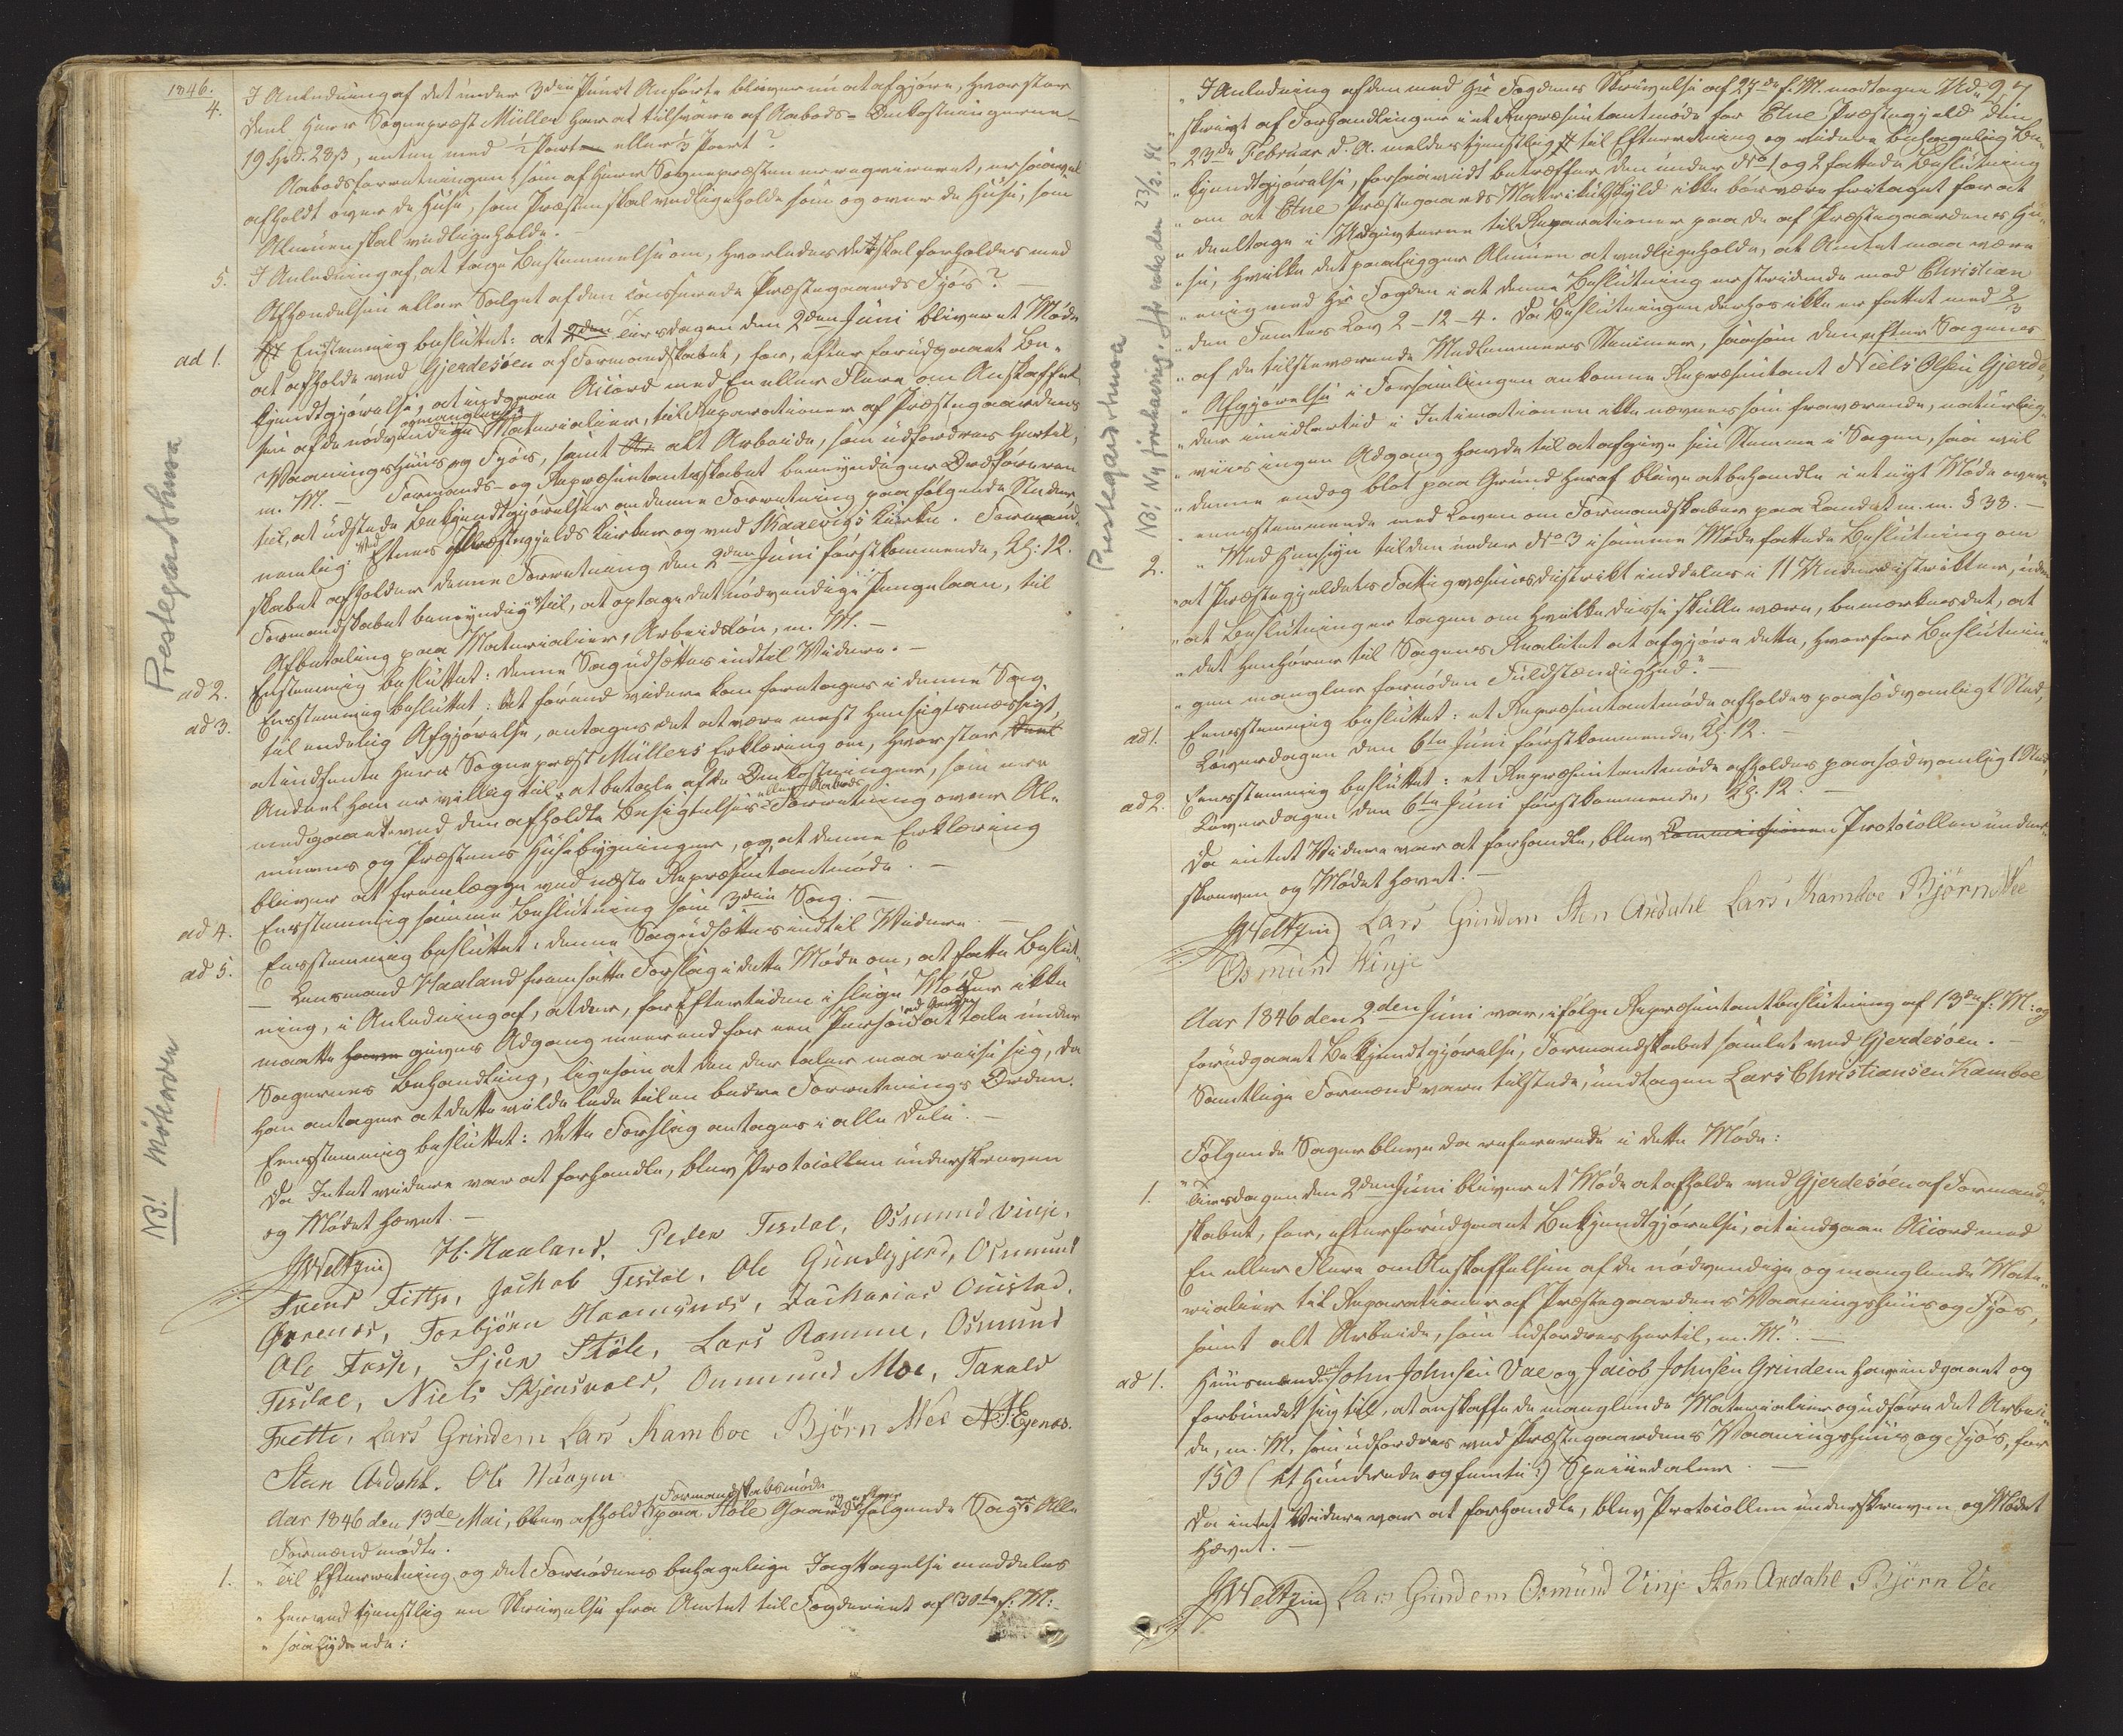 1846.
4. I Anledning af det under 3die Punct Anførte bliver nu at afgjøre, hvor stor
Deel Herr Sognepræst Müller har at tilsvare af Aabods-Omkostningerne
19 Spd. 28 β, enten med ½ Part eller ⅓ Part?
Aabodsforretningen som af Herr Sognepræsten er reqvireret, er saavel
afholdt over de Huse, som Præsten skal vedligeholde som og over de Huse, som
Almuen skal vedligeholde.
5. I Anledning af, at tage Bestemmelse om, hvorledes det skal forholdes med
Afhændelsen eller Salget af den casserede Præstegaards Fjós?
ad 1. Eenstemmig besluttet: at Tiirsdagen den 2den Juni bliver et Møde
at afholde ved Gjerdesøen af Formandskabet, for, efter forudgaaet Be-
kjendtgjørelse, at indgaae Accord med En eller Flere om Anskaffel-
sen af de nødvendige og manglende Materialier, til Reparationer af Præstegaardens
Vaaningshuus og Fjós, samt alt Arbeide, som udfordres hertil,
m. M. — Formands- og Repræsentantskabet bemyndiger Ordføreren
til, at udstede Bekjendtgjørelser om denne Forretning paa følgende Steder
nemlig: ved Etnes Præstegjelds Kirker og ved Skaanevigs Kirke. Formand-
skabet afholder denne Forretning den 2den Juni førstkommende, Kl: 12.
Formandskabet bemyndiges til, at optage det nødvendige Pengelaan, til
Afbetaling paa Materialier, Arbeidsløn, m. M. —
ad 2. Eenstemmig besluttet: denne Sag udsættes indtil Videre. —
ad 3. Eenstemmig besluttet: At førend videre kan foretages i denne Sag
til endelig Afgjørelse, antages det at være mest hensigtsmæssigt,
at indhente Herr Sognepræst Müllers Erklæring om, hvor stor
Andeel han er villig til at betale af de Omkostninger, som ere
medgaaet ved den afholdte Besigtelses- eller Aabods Forretning over Al-
muens og Præstens Huusebygninger, og at denne Erklæring
bliver at fremlægge ved næste Repræsentantmøde. —
ad 4. Eenstemmig samme Beslutning som 3die Sag. —
ad 5. Eenstemmig besluttet: denne Sag udsættes indtil Videre. —
— Lensmand Haaland fremsatte Forslag i dette Møde om, at fatte Beslut-
ning, i Anledning af, at der, for Eftertiden i slige Møder ikke
maatte gives Adgang meer end for een Person ad Gangen at tale under
Sagernes Behandling, ligesom at den der taler maa reise sig, da
han antager at dette vilde lede til en bedre Forretnings Orden.
Eenstemmig besluttet: dette Forslag antages i alle Dele. —
Da Intet videre var at forhandle, blev Protocollen underskreven
og Mødet hævet. —
JWeltzin H. Haaland, Peder Tesdal, Osmund Vinje,
Svend Fittje, Jackob Tesdal, Ole Grindegjerd, Osmund
Ørrenes, Torbjörn Haamsnes, Zacharias Onestad,
Ole Frette, Sjur Støle, Lars Ramme, Osmund
Tesdal, Niels Skjensvold, Ommund Moe, Tarald
Frette, Lars Grindem Lars Kamboe Björn Nee N.A. Egenæs.
Sten Ardahl. Ole Haugen
Aar 1846 den 13de Mai, blev afholdt Formandskabsmøde paa Støle Gaard og af følgende Sager Alle
Formænd mødte.
1. "Til Efterretning og det Fornødnes behagelige Iagttagelse meddeles
"herved tjenstlig en Skrivelse fra Amtet til Fogderiet af 30te f. M:
"saalydende:
Prestegardshusa
NB! Møteorden
97
"I Anledning af den med Hr Fogdens Skrivelse af 27de f. M. modtagne Ud-
"skrivt af Forhandlinger i et Repræsentantmøde for Etne Præstegjeld den
"23de Februar d. A. meldes tjenstligst til Efterretning og videre behagelig Be-
"kjendtgjørelse, forsaavidt betræffer den under No 1 og 2 fattede Beslutning
"om at Etne Præstegaards Matrikulskyld ikke bør være fritaget for at
"deeltage i Udgivterne til Reparationer paa de af Præstegaardens Hu-
"se, hvilke det paaligger Almuen at vedligeholde, at Amtet maa være
"enig med Hr Fogden i at denne Beslutning er stridende mod Christian
"den Femtes Lov 2-12-4. Da Beslutningen derhos ikke er fattet med 2/3
"af de tilstedeværende Medlemmers Stemmer, saasom den efter Sagens
"Afgjørelse i Forsamlingen ankomne Repræsentant Niels Olsen Gjerde,
"der imidlertid i Intimationen ikke nævnes som fraværende, naturlig-
"viis ingen Adgang havde til at afgive sin Stemme i Sagen, saa vil
"denne endog blot paa Grund heraf blive at behandle i et nyt Møde over-
"eensstemmende med Loven om Formandskaber paa Landet m. m. § 38. —
2. "Med Hensyn til den under No 3 i samme Møde fattede Beslutning om
"at Præstegjeldets Fattigvæsensdistrikt inddeles i 11 Underdistrikter, uden
"at Beslutning er tagen om hvilke disse skulle være, bemærkes det, at
"det henhører til Sagens Realitet at afgjøre dette, hvorfor Beslutnin-
"gen mangler fornøden Fuldstændighed." —
ad 1. Eenstemmig besluttet: et Repræsentantmøde afholdes paa sædvanligt Sted,
Løverdagen den 6te Juni førstkommende, Kl. 12. —
ad 2. Eenstemmig besluttet: et Repræsentantmøde afholdes paa sædvanligt Sted,
Løverdagen den 6te Juni førstkommende, Kl. 12. —
Da intet Videre var at forhandle, blev Protocollen under-
skreven og Mødet hævet. —
JWeltzin Lars Grindem Sten Ardahl Lars Kamboe Bjørn Nee
Osmund Winje
Aar 1846 den 2den Juni var, ifølge Repræsentantbeslutning af 13de f. M: og
forudgaaet Bekjendtgjørelse, Formandskabet samlet ved Gjerdesøen. —
Samtlige Formænd vare tilstede, undtagen Lars Christiansen Kamboe
Følgende Sager bleve da refererede i dette Møde:
1. "Tiirsdagen den 2den Juni bliver et Møde at afholde ved Gjerdesøen af Formand-
skabet, for, efter forudgaaet Bekjendtgjørelse, at indgaae Accord med
En eller Flere om Anskaffelsen af de nødvendige og manglende Mate-
rialier til Reparationer af Præstegaardens Vaaningshuus og Fjós,
samt alt Arbeide, som udfordres hertil, m. M." —
ad 1. Huusmænd John Johnsen Vae og Jacob Johnsen Grindem have indgaaet og
forbundet sig til, at anskaffe de manglende Materialier og udføre det Arbei-
de, m. M, som udfordres ved Præstegaardens Vaaningshuus og Fjós, for
150 (et Hundrede og femti) Speciedaler. —
Da intet Videre var at forhandle, blev Protocollen underskreven og Mødet
hævet. —
JWeltzin Lars Grindem Osmund Vinje Sten Ardahl Bjørn Vee
Prestegardshusa
NB! Ny førehaving, sjå møte den 23/2. 46